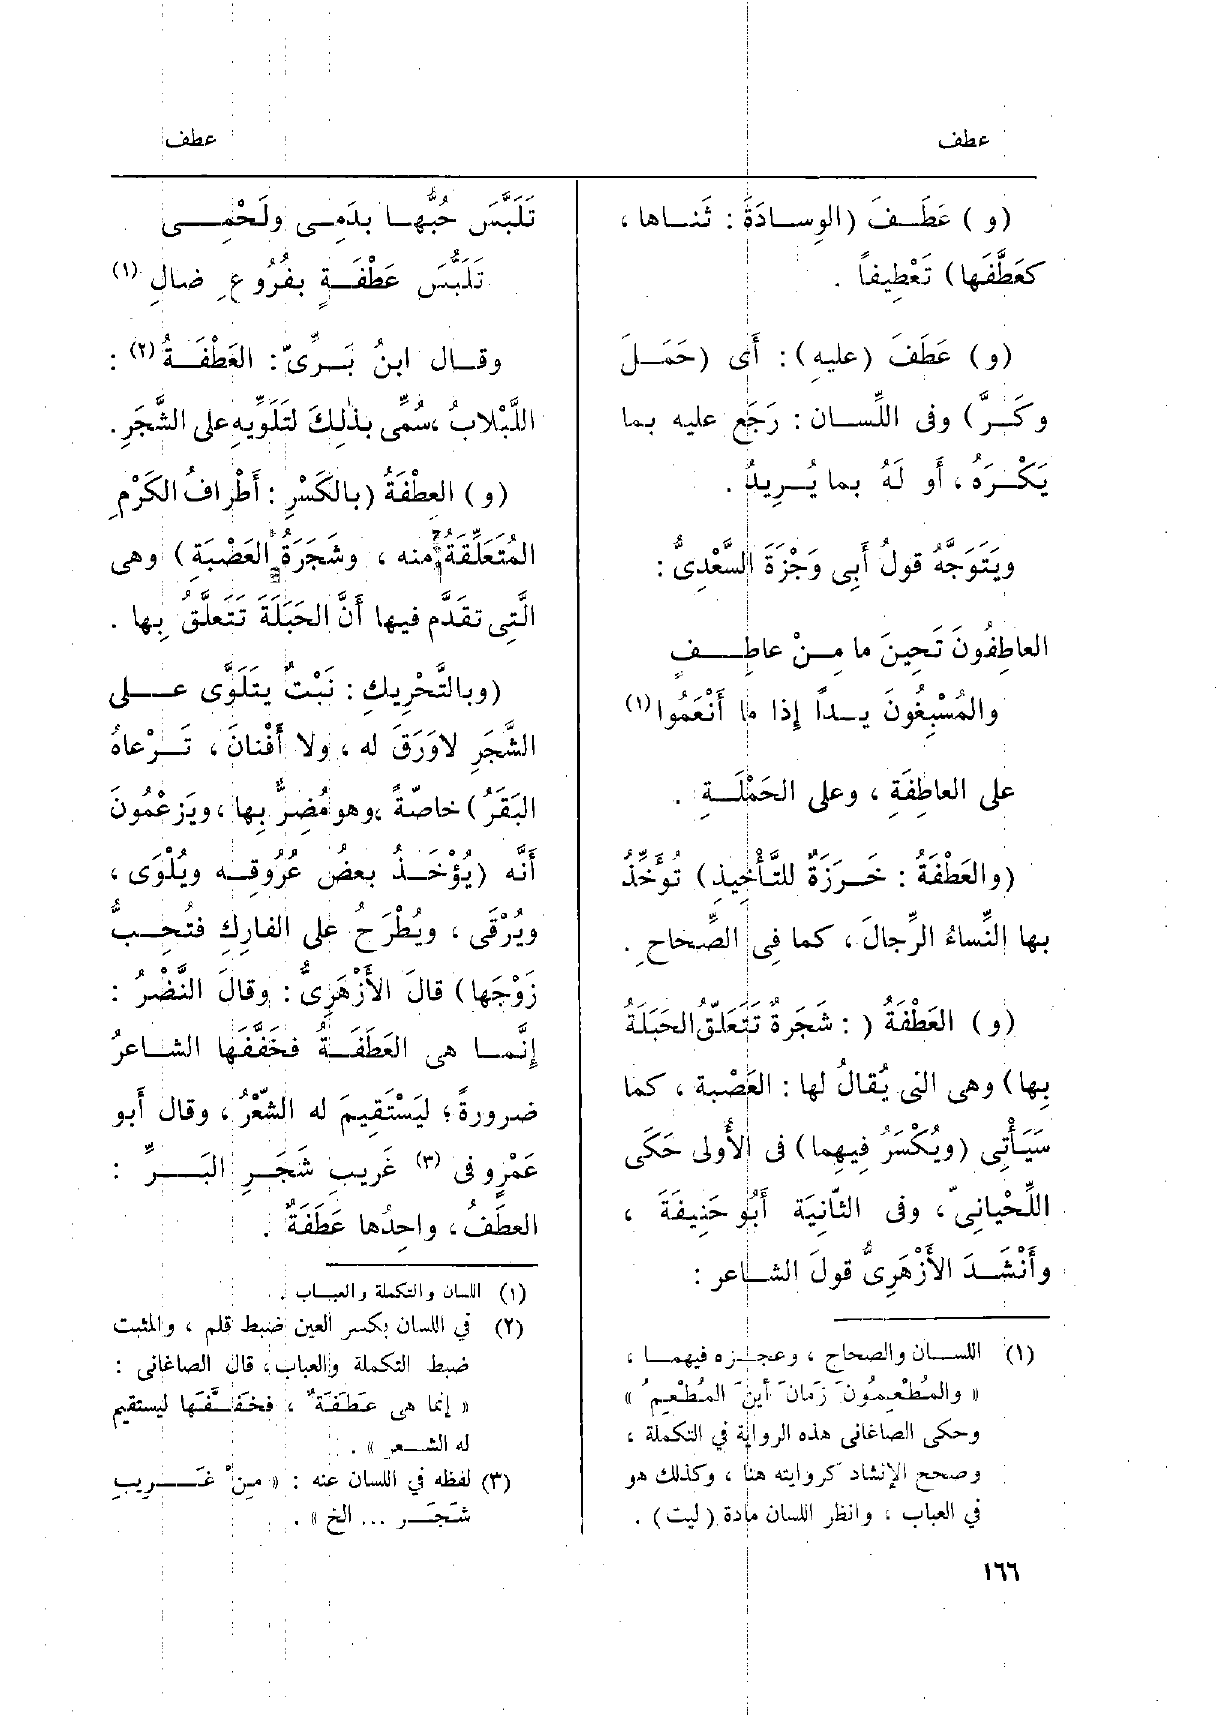 عطف
عطف
(و) عَطَفَ (الوِسادَةَ : ثَناها ،
كعَطَّفَها) تَعْطِيفاً .
(و) عَطَفَ (عليهِ) : أَى (حَمَلَ
وكَرَّ) وفى اللِّسان : رَجَع عليه بما
يَكْرَهُ ، أو لَهُ بما يُرِيدُ .
ويَتَوَجَّهُ قولُ أَبِى وَجْزَةَ السَّعْدِىُّ :
العاطِفُونَ تَحِينَ ما مِنْ عاطِفٍ
والمُسْبِغُونَ يداً إذا ما أَنْعَمُوا (١)
على العاطِفَةِ ، وعلى الحَمْلَةِ .
(والعَطْفَةُ : خَرَزَةٌ للتَّأْخِيذِ) تُوَخِّذُ
بها النِّساءُ الرِّجالَ ، كما فِى الصِّحاحِ .
(و) العَطْفَةُ ( : شَجَرةٌ تَتَعَلَّقُ الحَبَلَةُ
بِها) وهى التى يُقالُ لها : العَصْبة ، كما
سَيَأْتِى (ويُكْسَرُ فِيهِما) فى الأُولى حَكَى
اللِّحْيانِىّ ، وفى الثّانِيَة أَبُو حَنِيفَةَ ،
وأَنْشَدَ الأَزْهَرِىُّ قولَ الشاعر :
(١) اللسان والصحاح ، وعجزه فيهما ،
« والمُطْعِمُونَ زَمَانَ أَينَ المُطْعِمُ »
وحكى الصاغانى هذه الرواية في التكملة ،
وصحح الإنشاد كروايته هنا ، وكذلك هو
في العباب ، وانظر اللسان مادة (ليت) .
١٦٦
تَلَبَّسَ حُبُّها بدَمِى ولَحْمِى
تَلَبُّسَ عَطْفَةٍ بفُرُوعِ ضالِ (١)
وقال ابنُ بَرِّىّ : العَطْفَةُ (٢) :
اللَّبْلابُ ، سُمِّى بذٰلِكَ لتَلَوِّيهِ على الشَّجَرِ.
(و) العِطْفَةُ (بالكَسْرِ : أَطْرافُ الكَرْمِ
المُتَعَلِّقَةُ منه ، وشَجَرَةُ العَصْبَةِ) وهى
الَّتِى تقدَّم فيها أَنَّ الحَبَلَةَ تَتَعَلَّقُ بِها .
(وبالتَّحْرِيكِ : نَبْتٌ يتَلَوَّى على
الشَّجَرِ لاوَرَقَ له ، ولا أَفْنانَ ، تَرْعاهُ
البَقَرُ) خاصَّةً ، وهو مُضِرٌّ بِها ، ويَزعُمُونَ
أَنَّه (يُؤْخَذُ بعضُ عُرُوقِه ويُلْوَى ،
ويُرْقَى ، ويُطْرَحُ على الفارِكِ فتُحِبُّ
زَوْجَها) قالَ الأَزْهَرِىُّ : وقالَ النَّضْرُ :
إِنَّما هى العَطَفَةُ فخَفَّفَها الشاعرُ
ضرورةً ؛ ليَسْتَقِيمَ له الشّعْرُ ، وقال أَبو
عَمْرٍو فى (٣) غَرِيبِ شَجَرِ البَرِّ :
العطَفُ ، واحِدُها عَطَفَةٌ .
(١) اللسان والتكملة والعباب .
(٢) في اللسان بكسر العين ضبط قلم ، والمثبت
ضبط التكملة والعباب ، قال الصاغانى :
« إنما هى عَطَفَةٌ ، فخَفَّفَها ليستقيم
له الشعر » .
(٣) لفظه في اللسان عنه : « مِنْ غَرِيبِ
شَجَرِ ... الخ » .